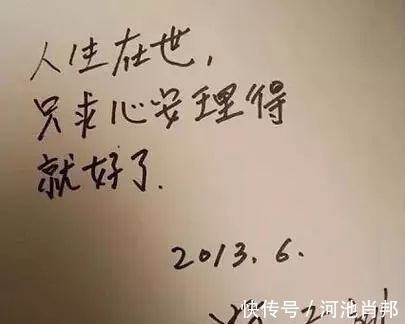 人生在世，
只求心安理得
就好了.
2013.6.
快传号/河池肖邦